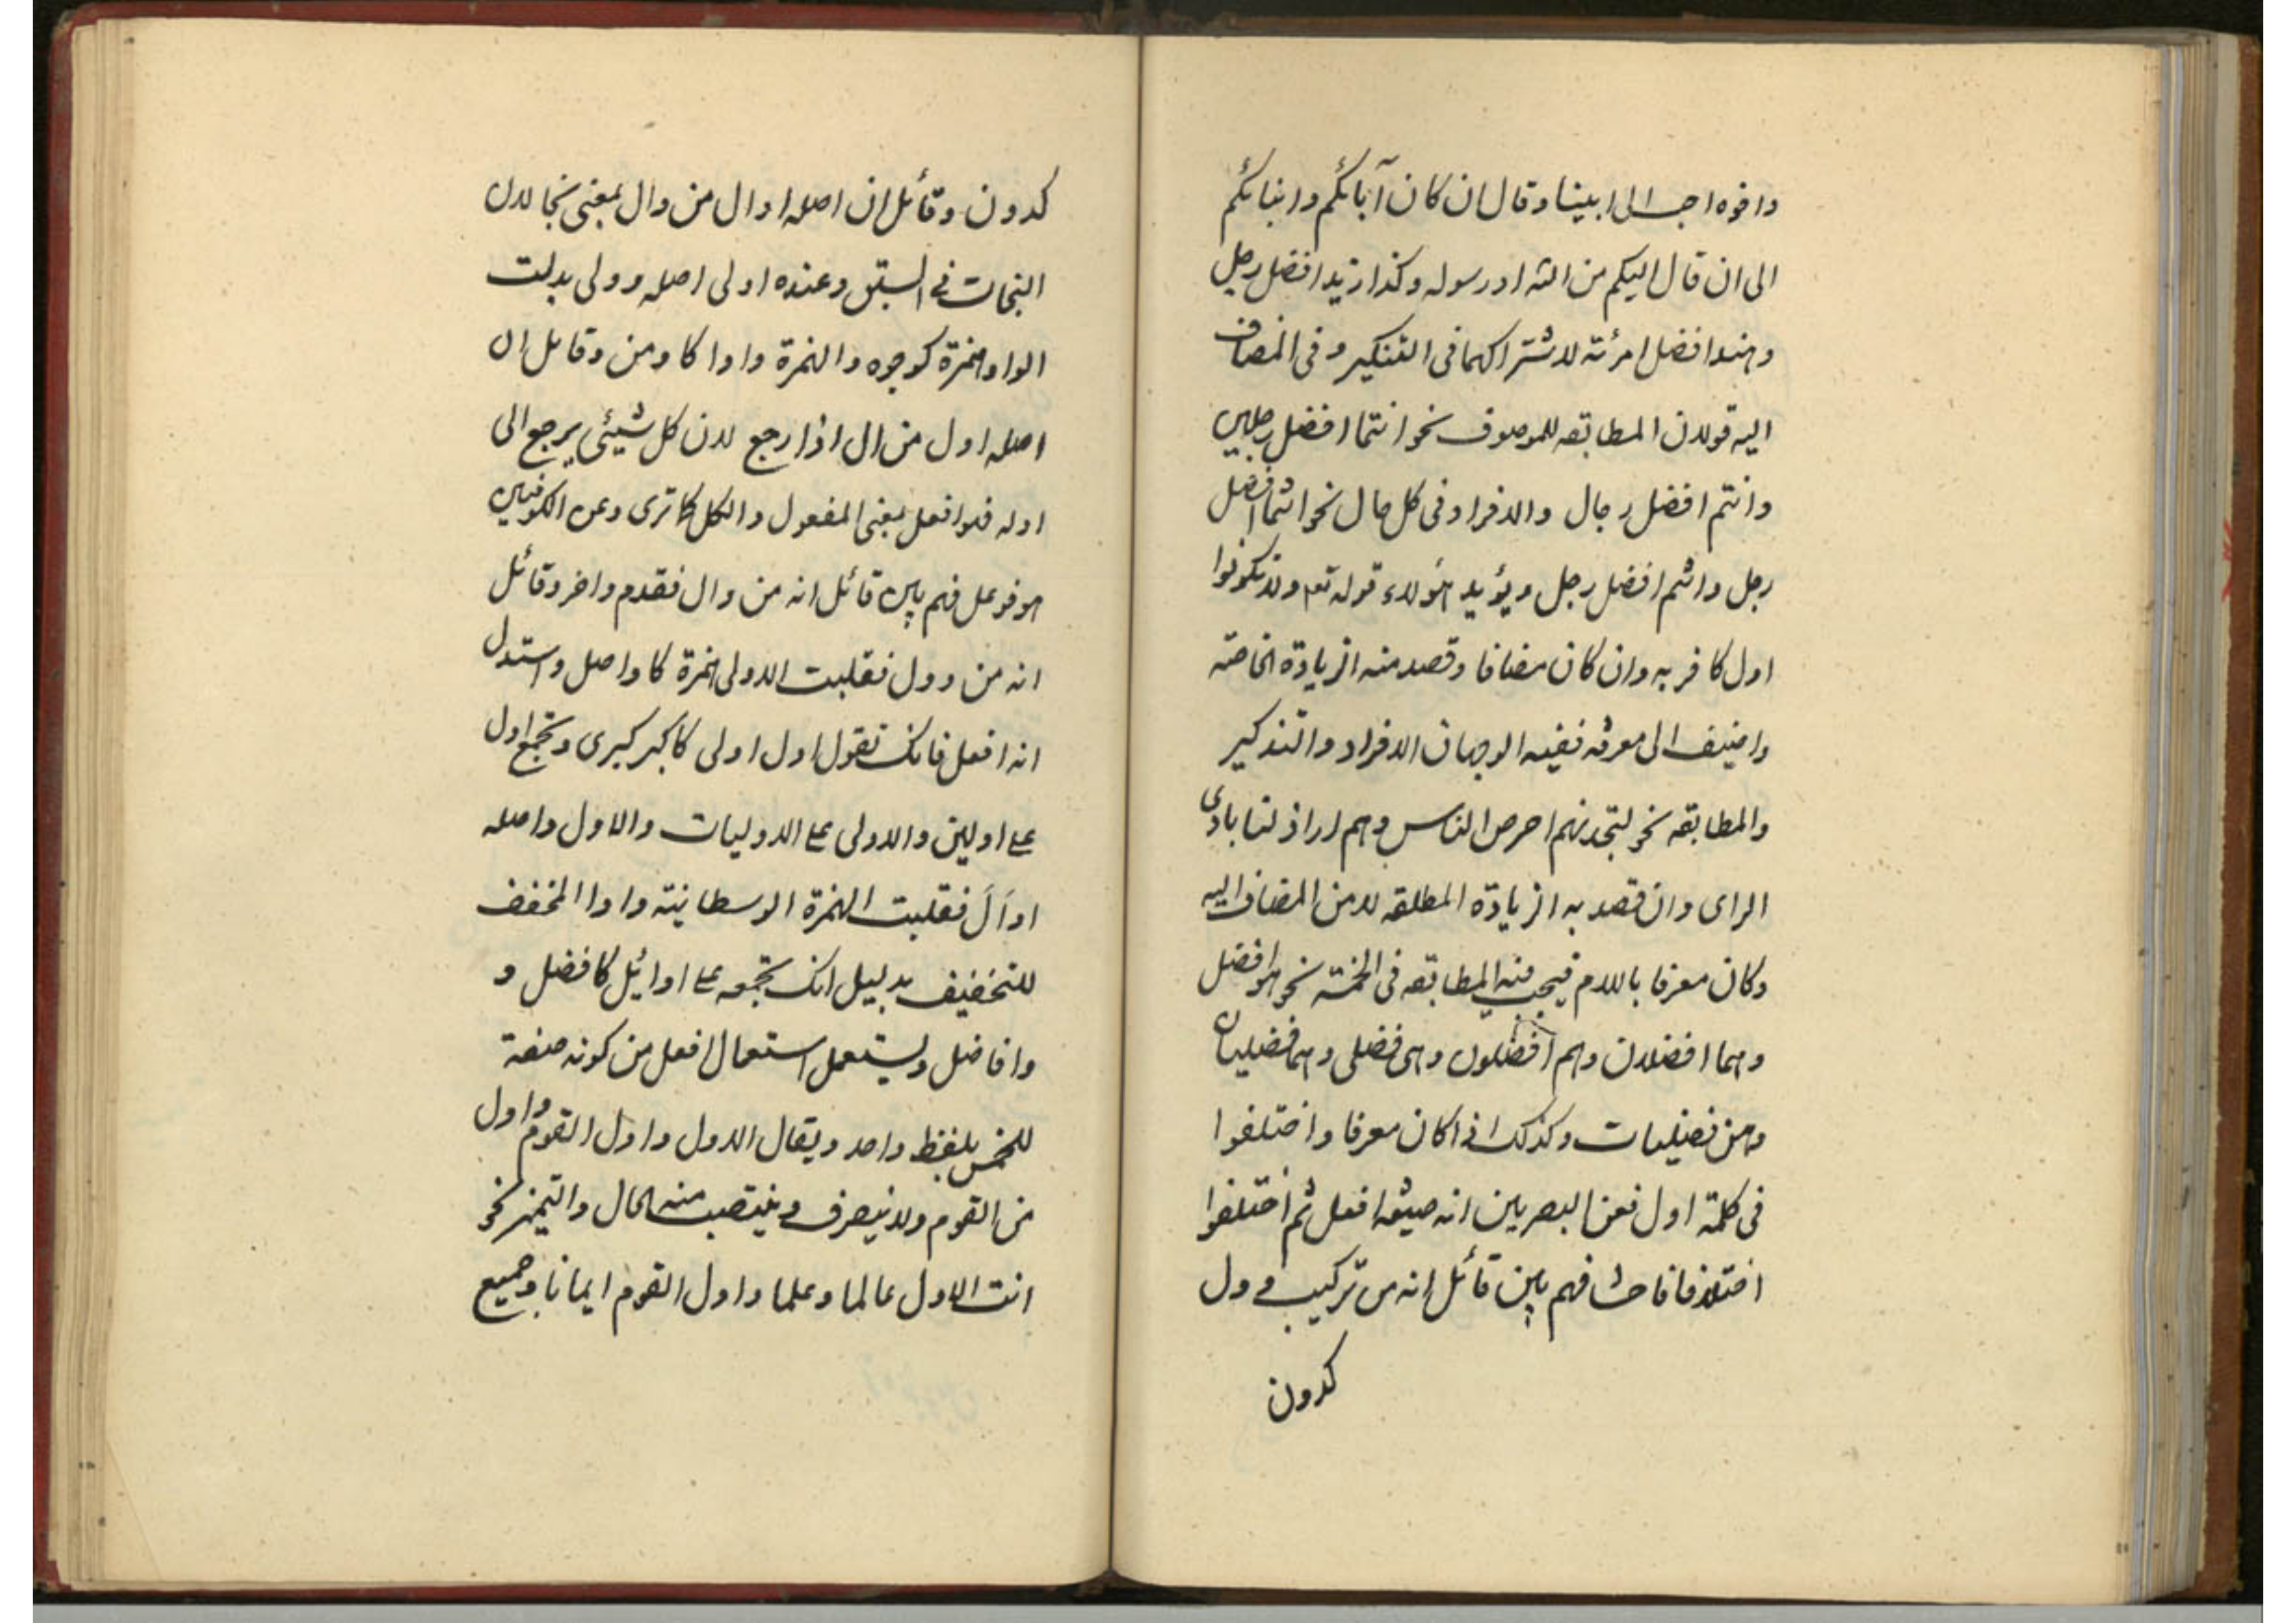 واخوه احب الى ابينا وقال ان كان آبائكم وابنائكم
الى ان قال اليكم من الله ورسوله وكذا زيد افضل رجل
وهند افضل امرئة لاشتراكهما فى التنكير و فى المضاف
اليه قولان المطابقه للموصوف نحو انتما افضل رجلين
وانتم افضل رجال والافراد فى كل حال نحو انتما افضل
رجل وانتم افضل رجل ويؤيد هؤلاء قوله تع ولا تكونوا
اول كافر به وان كان مضافا وقصد منه الزيادة الخاصة
واضيف الى معرفة ففيه الوجهان الافراد والتذكير
والمطابقه نحو لتجدنهم احرص الناس وهم اراذلنا بادى
الراى وان قصد به الزيادة المطلقه لا من المضاف اليه
وكان معرفا باللام فيجب فيه المطابقه فى الخمسة نحو هو افضل
وهما افضلان وهم افضلون وهى فضلى وهما فضليان
وهن فضليات وكذلك اذا كان معرفا واختلفوا
فى كلمة اول فعن البصريين انه صيغة افعل ثم اختلفوا
اختلافا فاحشا فهم بين قائل انه من تركيب وول
كدون
كدون وقائل ان اصله اوال من وال بمعنى نجا لان
النجات فى السبق وعنده اولى اصله وولى بدلت
الواو همزة كوجوه والهمزة واوا كاومن وقائل ان
اصله اول من ال اذا رجع لان كل شيئى يرجع الى
اوله فهو افعل بمعنى المفعول والكل كما ترى وعن الكوفيين
هو فوعل فهم بين قائل انه من وال فقدم واخر وقائل
انه من وول فقلبت الاولى همزة كاواصل واستدل
انه افعل فانك تقول اول اولى كاكبر كبرى وتجمع اول
على اولين والاولى على الاوليات والاول واصله
اوأل فقلبت الهمزة الوسطانية واوا المخفف
للتخفيف بدليل انك تجمعه على اوائل كافضل و
وافاضل ويستعمل استعمال افعل من كونه صفة
للخمس بلفظ واحد ويقال الاول واول القوم واول
من القوم ولا ينصرف وينتصب منه الحال والتميز نحو
انت الاول عالما وعلما واول القوم ايمانا وجميع